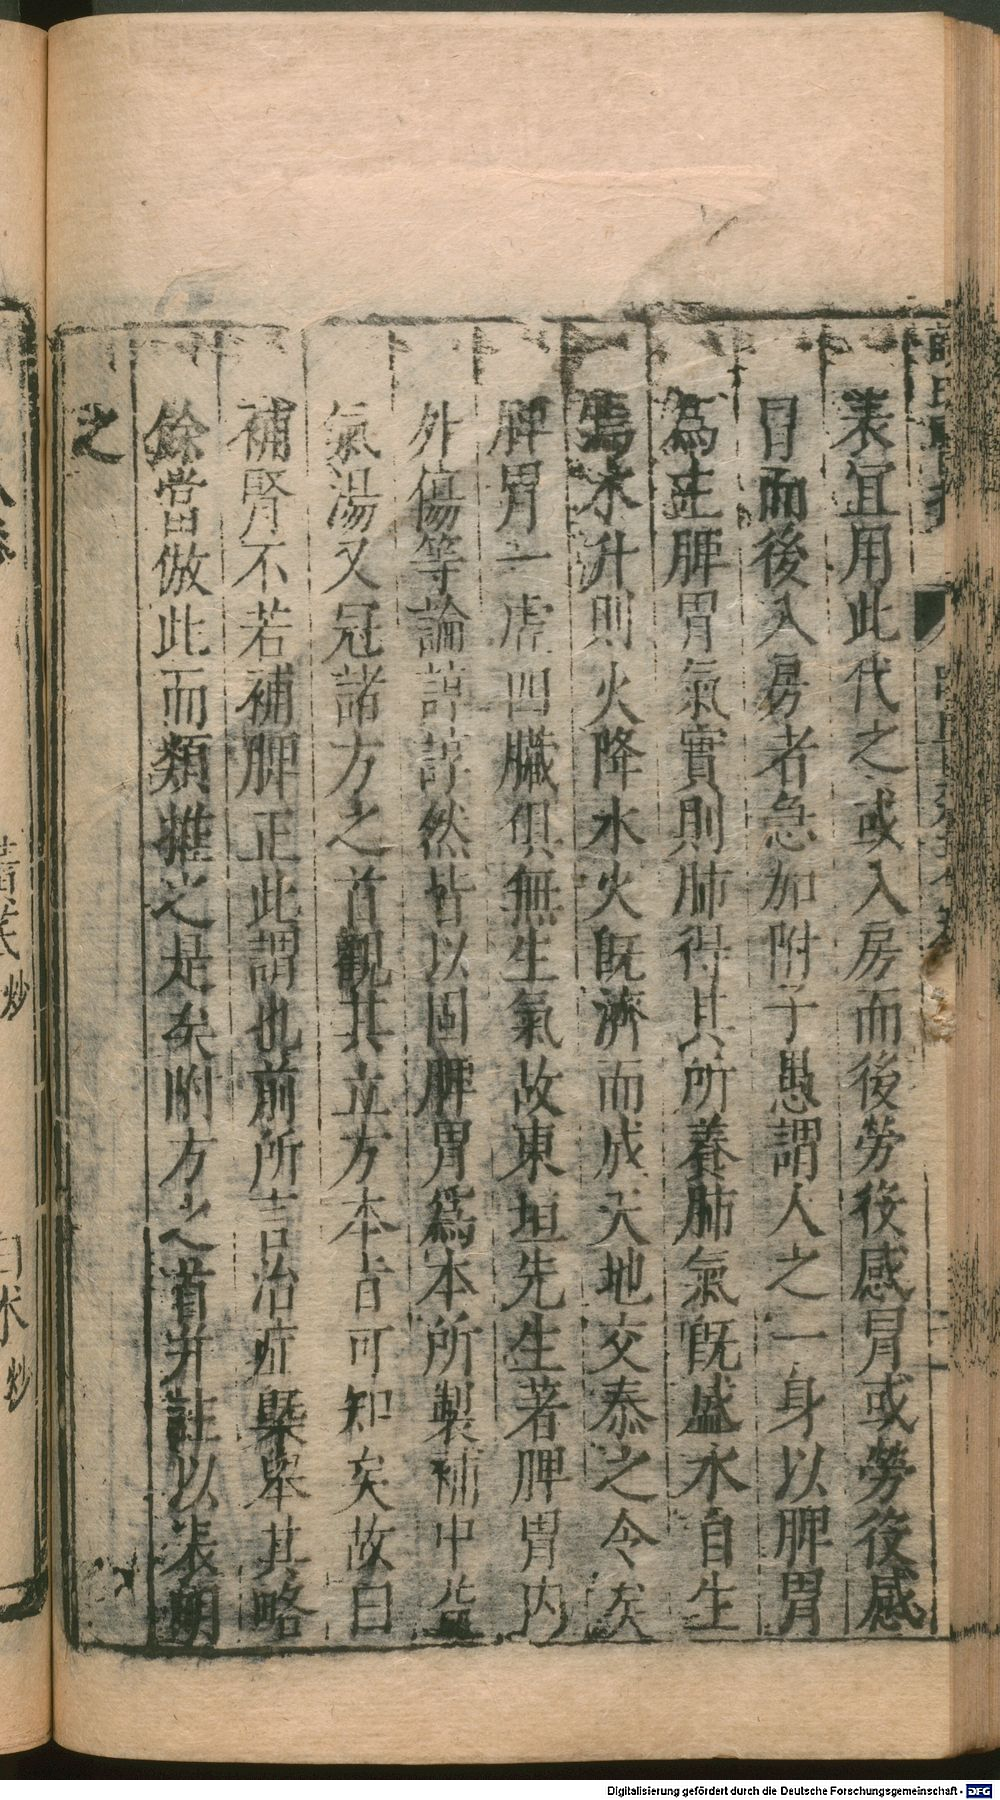 表宜用此代之或入房而後勞役感冒或勞役感
冒而後入房者急加附子愚謂人之一身以脾胃
為主脾胃氣實則肺得其所養肺氣既盛水自生
焉水升則火降水火既濟而成天地交泰之令矣
脾胃一虛四臟俱無生氣故東垣先生著脾胃內
外傷等論諄諄然皆以固脾胃為本所製補中益
氣湯又冠諸方之首觀其立方本旨可知矣故曰
補腎不若補脾正此謂也前所言治症槩舉其略
餘當倣此而類推之是矣附方之首并註以表明
之
炒
白朮炒
Digitalisierung gefördert durch die Deutsche Forschungsgemeinschaft - DFG